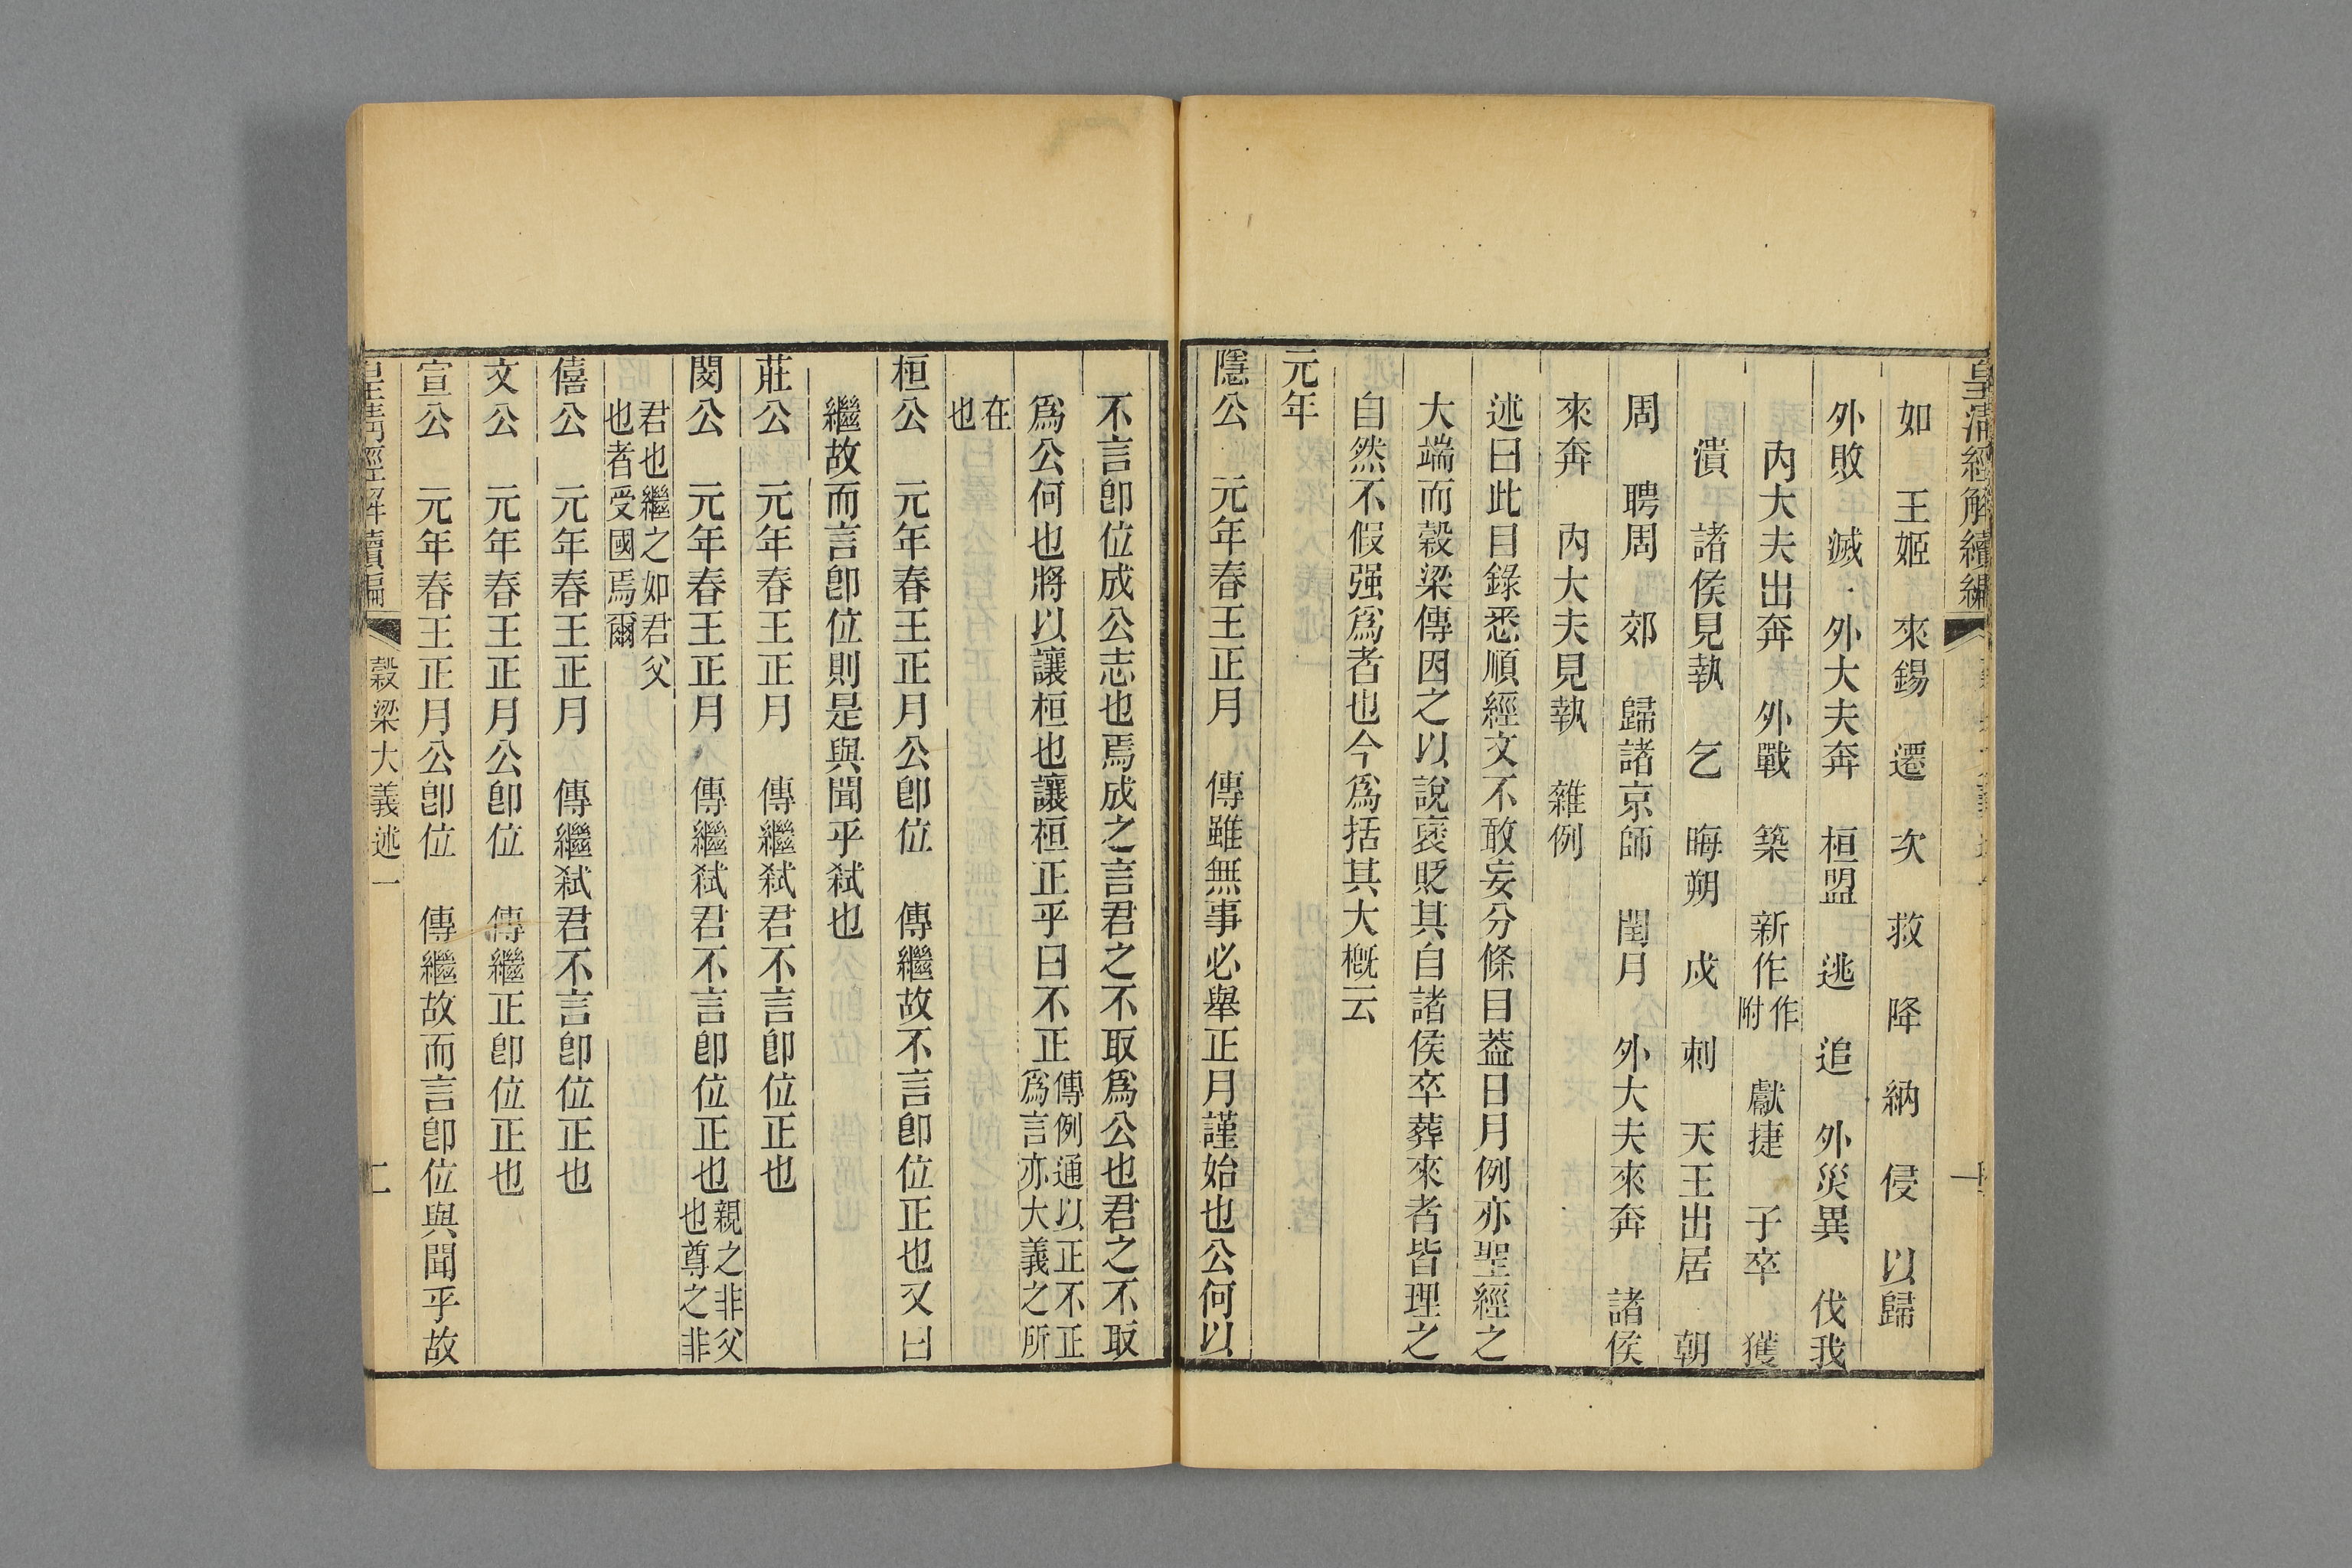 皇清經解續編
如　王姬　來錫　遷　次　救　降　納　侵　以歸
外敗　滅　外大夫奔　桓盟　逃　追　外災異　伐我
內大夫出奔　外戰　築　新作作附　獻捷　子卒　獲
潰　諸侯見執　乞　晦朔　戍　刺　天王出居　朝
周　聘周　郊　歸諸京師　閏月　外大夫來奔　諸侯
來奔　內大夫見執　雜例
述曰此目錄悉順經文不敢妄分條目葢日月例亦聖經之
大端而穀梁傳因之以說褒貶其自諸侯卒葬來者皆理之
自然不假强爲者也今爲括其大概云
元年
隱公　元年春王正月　傳雖無事必舉正月謹始也公何以
不言卽位成公志也焉成之言君之不取爲公也君之不取
爲公何也將以讓桓也讓桓正乎曰不正傳例通以正不正爲言亦大義之所
在也
桓公　元年春王正月公卽位　傳繼故不言卽位正也又曰
繼故而言卽位則是與聞乎弒也
莊公　元年春王正月　傳繼弒君不言卽位正也
閔公　元年春王正月　傳繼弒君不言卽位正也親之非父也尊之非
君也繼之如君父也者受國焉爾
僖公　元年春王正月　傳繼弒君不言卽位正也
文公　元年春王正月公卽位　傳繼正卽位正也
宣公　元年春王正月公卽位　傳繼故而言卽位與聞乎故
皇淸經解續編　穀梁大義述一　二